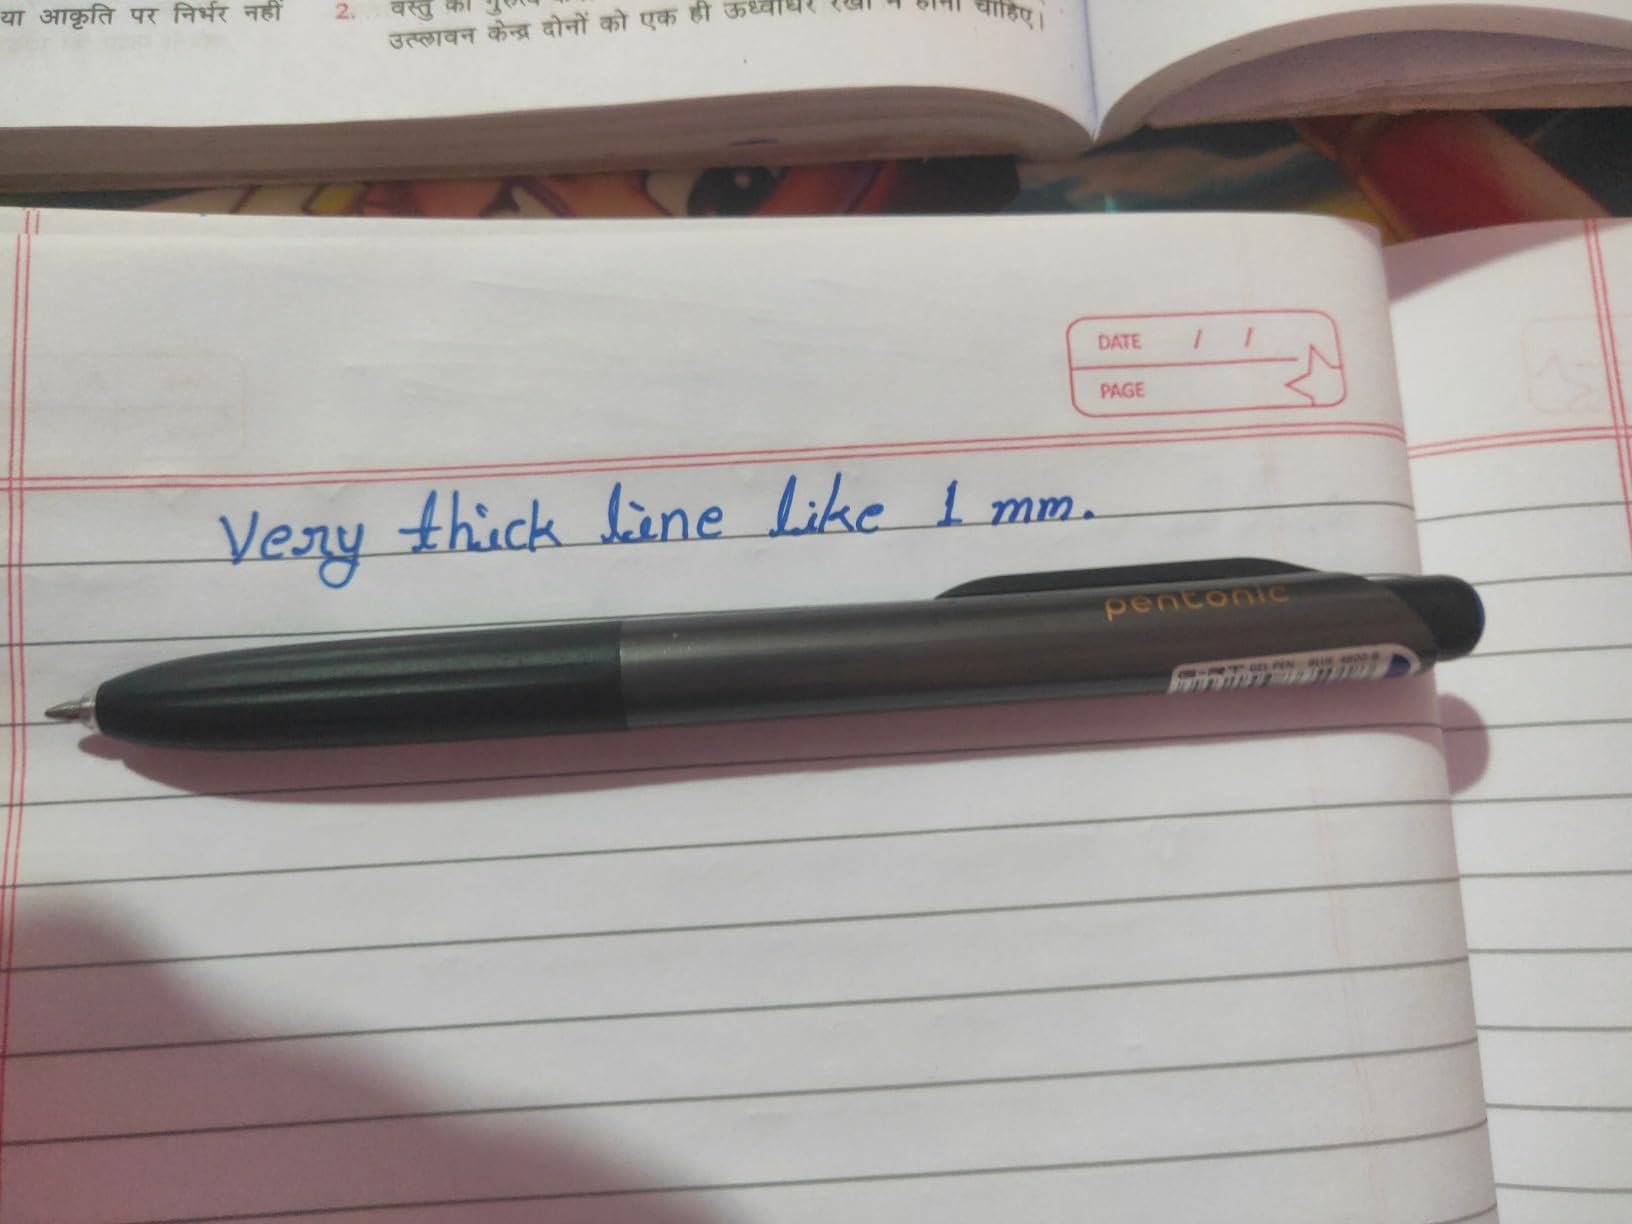 या आकृति पर निर्भर नहीं
2.
वस्तु का
उत्प्लावन केन्द्र दोनों को एक ही ऊर्ध्वाधर रेखा में होना चाहिए।
DATE / /
PAGE
Very thick line like 1 mm.
pentonic
GEL PEN BLUE